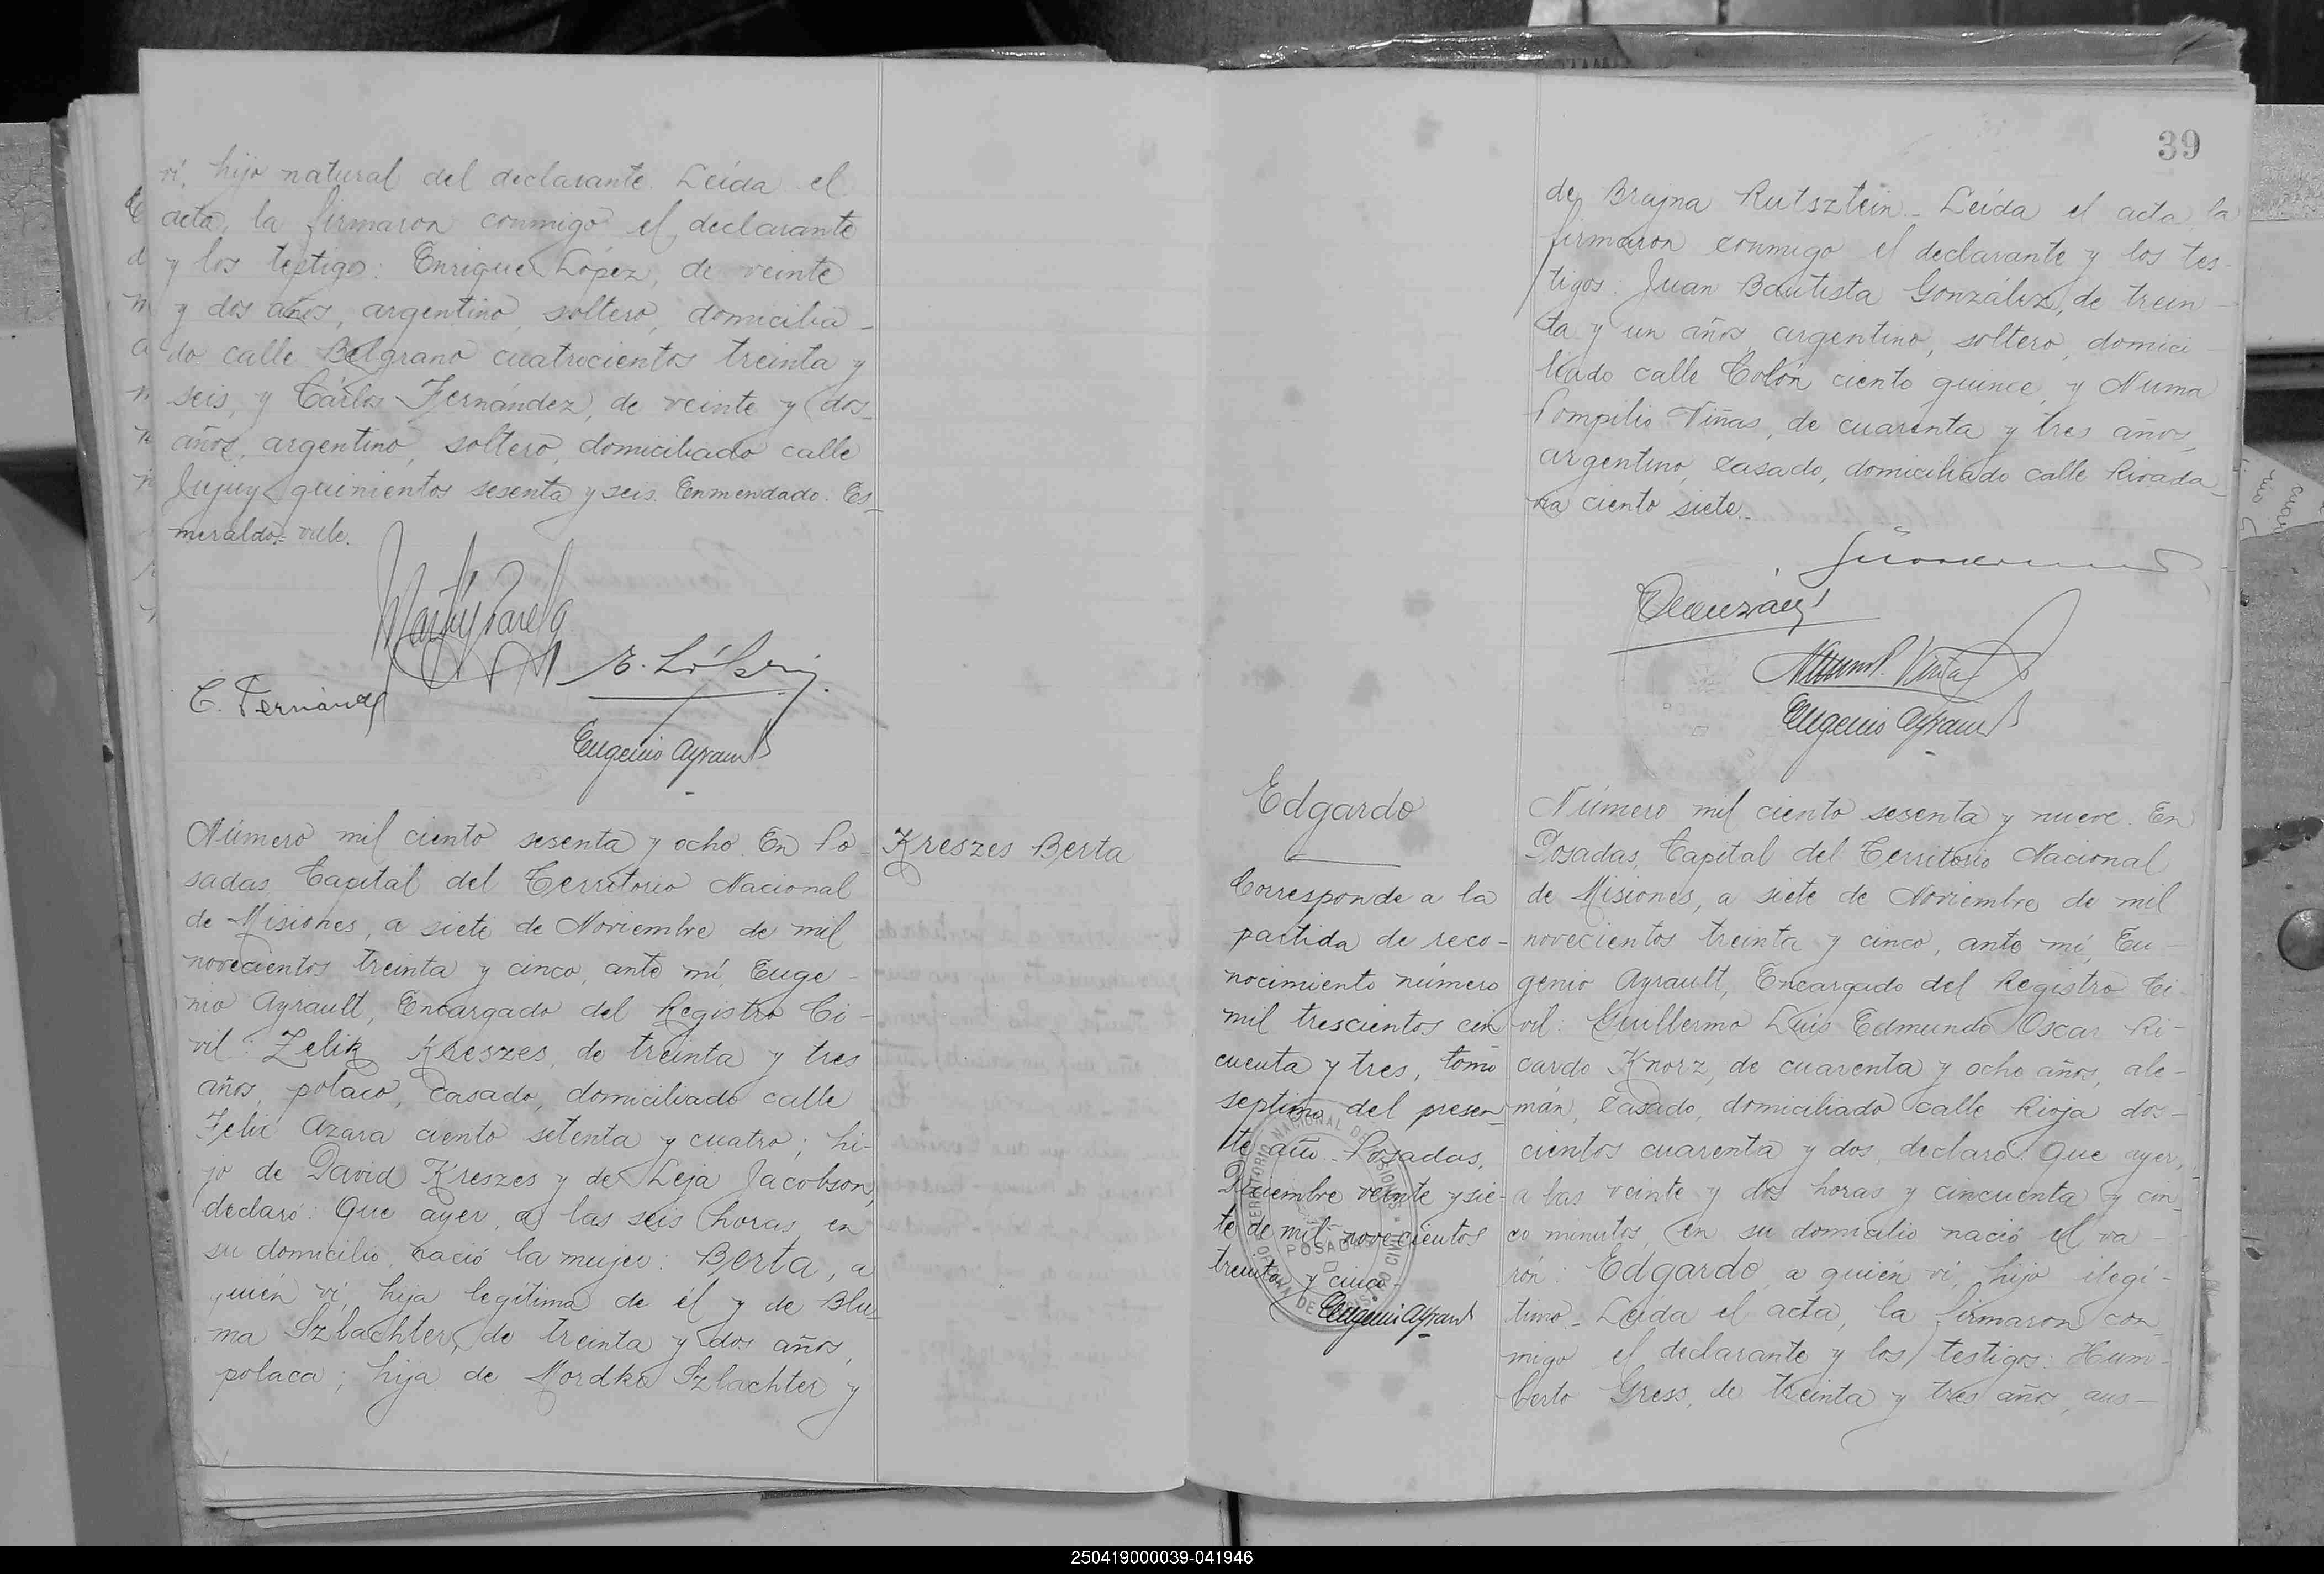 vi, hijo natural del declarante. Leída el
acta, la firmaron conmigo el declarante
y los testigos: Enrique López, de veinte
y dos años, argentino, soltero, domicilia-
do calle Belgrano cuatrocientos treinta y
seis, y Cárlos Fernández, de veinte y dos
años, argentino, soltero, domiciliado calle
Jujuy quinientos sesenta y seis. Enmendado. Es-
meraldo: vale.
E. López
C. Fernández
Eugenio Ayrault
Número mil ciento sesenta y ocho. En Po-
sadas, Capital del Territorio Nacional
de Misiones, a siete de Noviembre de mil
novecientos treinta y cinco, ante mí, Euge-
nio Ayrault, Encargado del Registro Ci-
vil: Zelik Kreszes, de treinta y tres
años, polaco, casado, domiciliado calle
Felix Azara ciento setenta y cuatro; hi-
jo de David Kreszes y de Leja Jacobson,
declaró: Que ayer, a las seis horas, en
su domicilio, nació la mujer: Berta, a
quién ví, hija legítima de él y de Blu-
ma Szlachter, de treinta y dos años,
polaca; hija de Mordka Szlachter y
Kreszes Berta
39
de Brajna Rutsztein.- Leída el acta la
firmaron conmigo el declarante y los tes-
tigos: Juan Bautista González, de trein-
ta y un años, argentino, soltero, domici-
liado calle Colón ciento quince, y Numa
Pompilio Viñas, de cuarenta y tres años,
argentino, casado, domiciliado calle Rivada-
via ciento siete.-
Eugenio Ayrault
Edgardo
Corresponde a la
partida de reco-
nocimiento número
mil trescientos cin-
cuenta y tres, tomo
septimo del presen-
te año.- Posadas,
Diciembre veinte y sie-
te de mil novecientos
treinta y cinco.-
Eugenio Ayrault
POSADAS
Número mil ciento sesenta y nueve. En
Posadas, Capital del Territorio Nacional
de Misiones, a siete de Noviembre de mil
novecientos treinta y cinco, ante mí, Eu-
genio Ayrault, Encargado del Registro Ci-
vil: Guillermo Luis Edmundo Oscar Ri-
cardo Knorz, de cuarenta y ocho años, ale-
mán, casado, domiciliado calle Rioja dos-
cientos cuarenta y dos, declaró: Que ayer,
a las veinte y dos horas y cincuenta y cin-
co minutos, en su domicilio nació el va-
rón: Edgardo a quién ví, hijo ilegí-
timo.- Leída el acta, la firmaron con-
migo el declarante y los testigos: Hum-
berto Gress, de treinta y tres años, aus-
250419000039-041946